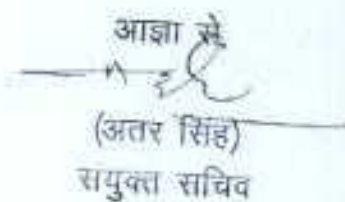 आज्ञा से
(अतर सिंह)
सयुक्त सचिव